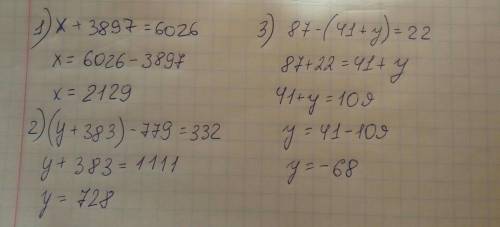 1) x + 3897 = 6026
x = 6026 - 3897
x = 2129
2) (y + 383) - 779 = 332
y + 383 = 1111
y = 728
3) 87 - (41 + y) = 22
87 + 22 = 41 + y
41 + y = 109
y = 41 - 109
y = -68